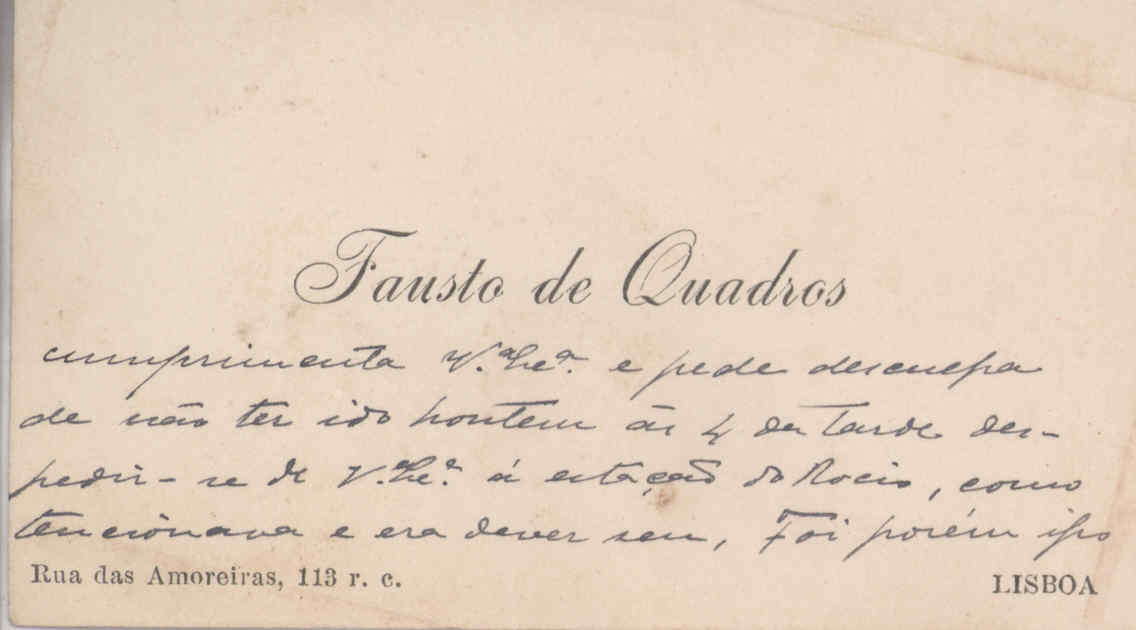 Fausto de Quadros
cumprimenta V.ª Ex.ª e pede desculpa
de não ter ido hontem ás 4 da tarde des-
pedir-se de V.ª Ex.ª á estação do Rocio, como
tencionava e era dever seu, Foi porém isso
Rua das Amoreiras, 113 r. c.
LISBOA